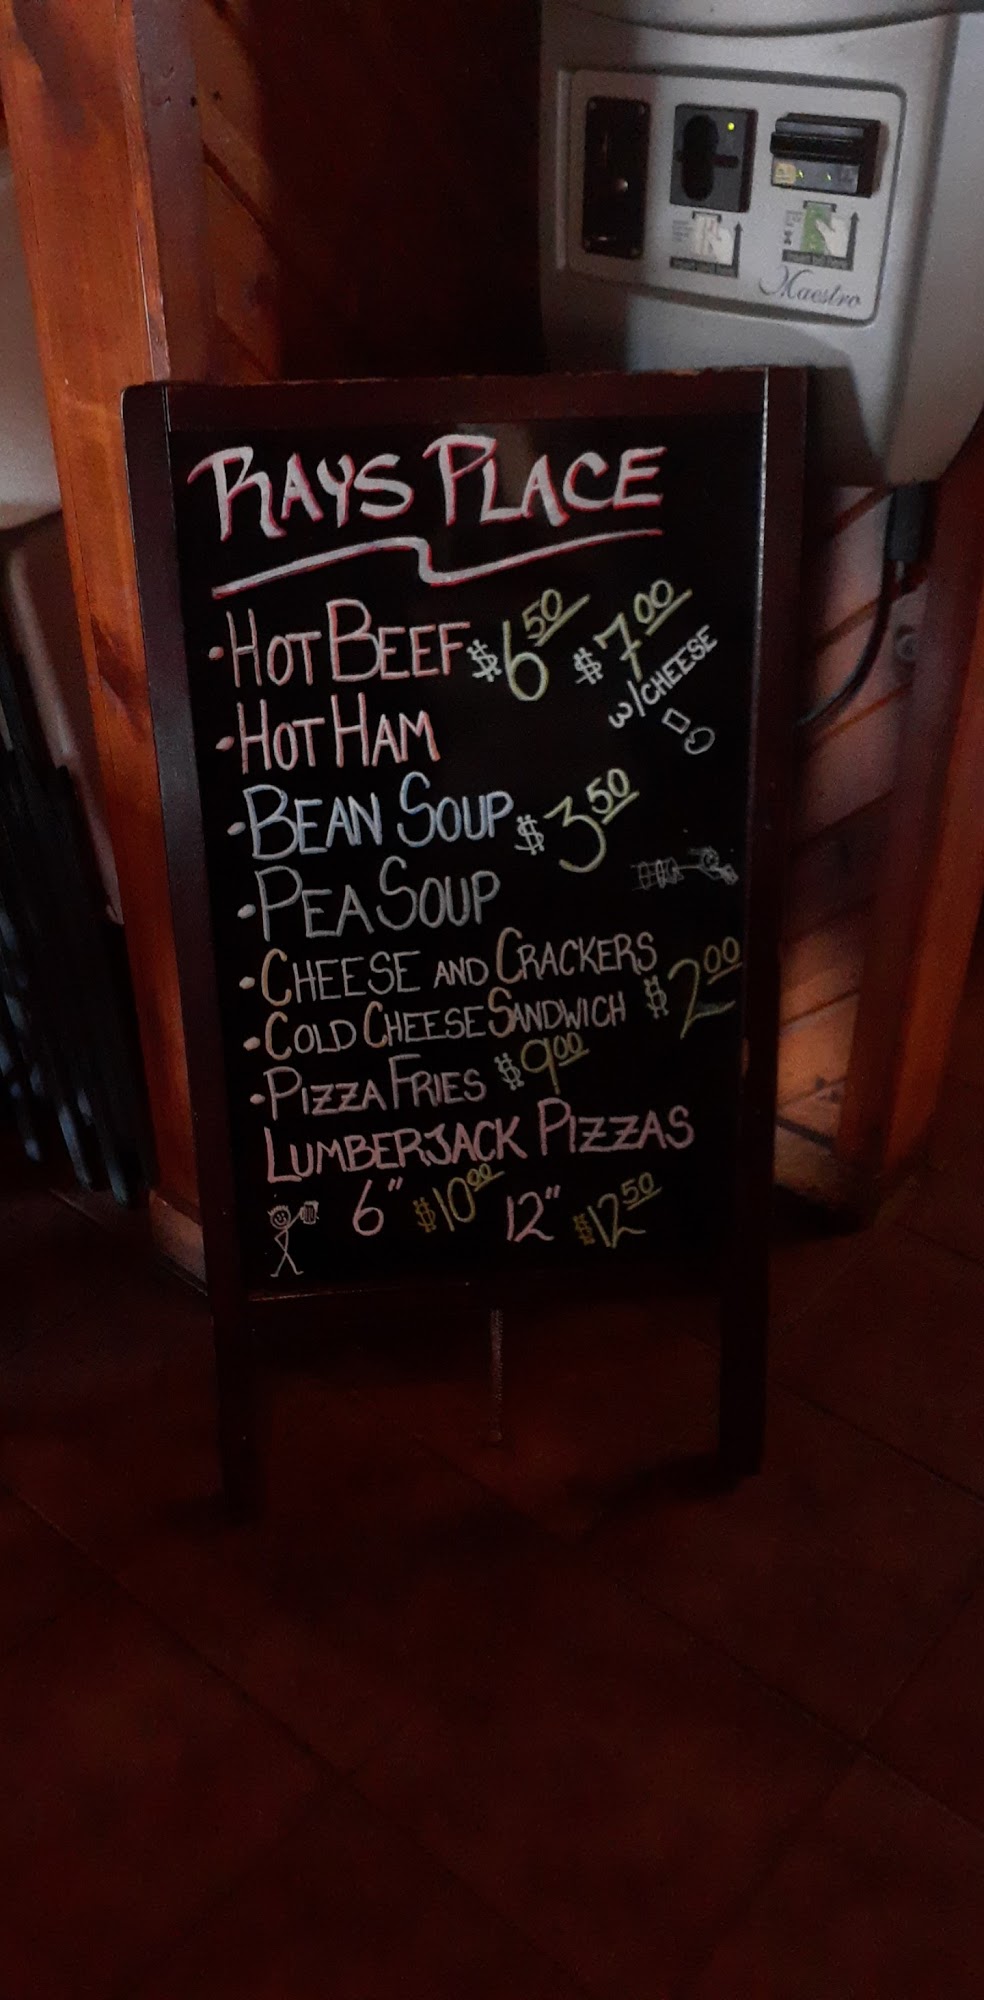 Maestro
RAYS PLACE
• HOT BEEF $6.50 $7.00
w/CHEESE
• HOT HAM
• BEAN SOUP $3.50
• PEA SOUP
• CHEESE AND CRACKERS
• COLD CHEESE SANDWICH $2.00
• PIZZA FRIES $9.00
LUMBERJACK PIZZAS
6" $10.00 12" $12.50